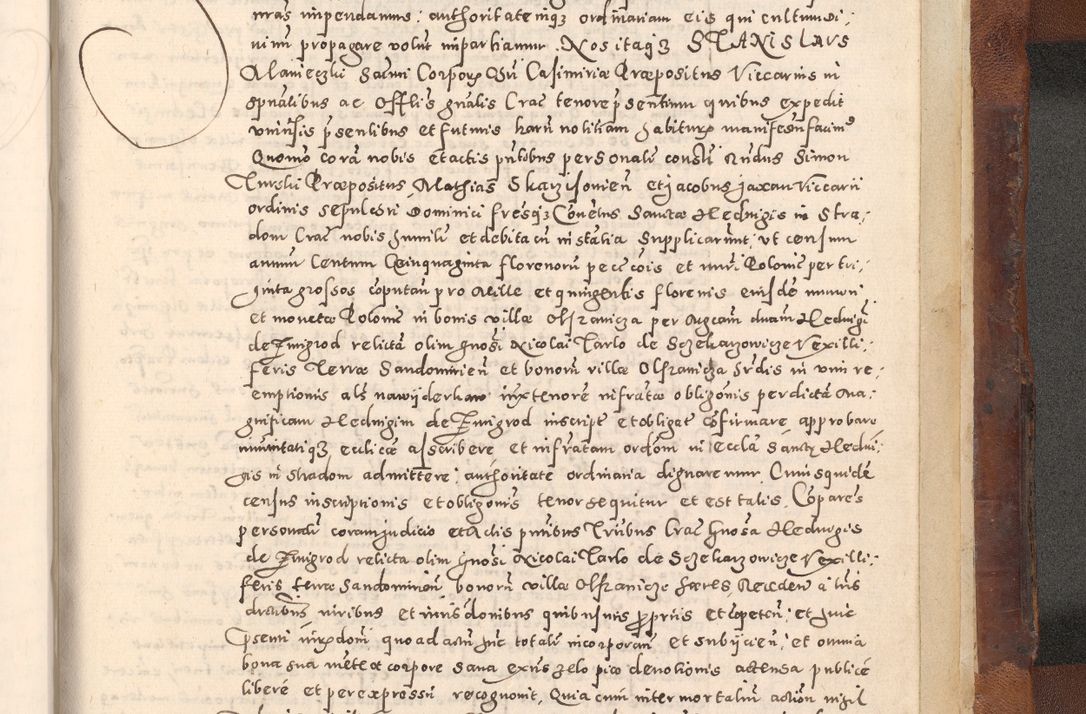 nras impendamus: authoritatemqz ordinariam eis qui cultum di:
vinum propagare volunt impartiamur. Nos itaqz STANISLAVS
Manieczki Sacmi Corporis Xri Casimiriae Praepositus Viccarius in
spualibus ac Offlis gnalis Crac tenore psentium quibus expedit
universis psentibus et futuris harum notitiam habituris manifestum facimus
Quomo cora nobis et actis pntibus personalr constti Rndus Simon
Turski Praepositus, Mathias Skarzisouien et Jacobus Jaxan Viccarii
ordinis sepulchri Dominici fresqz Conventus Sanctae Hedvigis in Stra:
dom Crac nobis humili et debita cu instatia supplicarunt, ut censum
annuum Centum Quinquaginta florenorum pecc cois et nuri Poloniae per tri:
ginta grossos coputan pro Mille et quingentis florenis eiusde numeri
et monetae Poloniae in bonis villae Olszanicza per Mgcam dnam Hedvigi
de Zmigrod relicta olim gnosi Nicolai Tarlo de Sczekarzowicze Vexilli:
feris Terrae Sandomirien et bonorum villae Olszanicza hrdis in vim re:
emptionis als nawyderkaw iuxtenore infratae obligonis per dicta Ma:
gnificam Hedvigim de Zmigrod inscript et obligat cofirmare approbare
immunitatiqz ecclicae asscribere et infratam ordom in eccla Sanctae Hedvi:
gis in Stradom admittere: authoritate ordinaria dignaremur. Cuiusquidem
census inscriptionis et obligonis tenor sequitur et est talis. Copares
personalr coram judicio et Actis pntibus Trribus Crac gnosa Hedvigis
de Zmigrod relicta olim gnosi Nicolai Tarlo de Sczekarzowicze Vexilli:
feris terrae Sandomirien bonorum villae Olszanicze haeres Recedens a suis
iuribus et iurisdonibus quibusuis propriis et copeten: et huic
psenti iurisdoni quo ad actum hnc totalr incorporan et subijcien: et omnia
bona sua mente et corpore sana exns zelo piae devotionis accensa publice
libere et per expressum recognovit, Quia cum inter mortalium action nihil